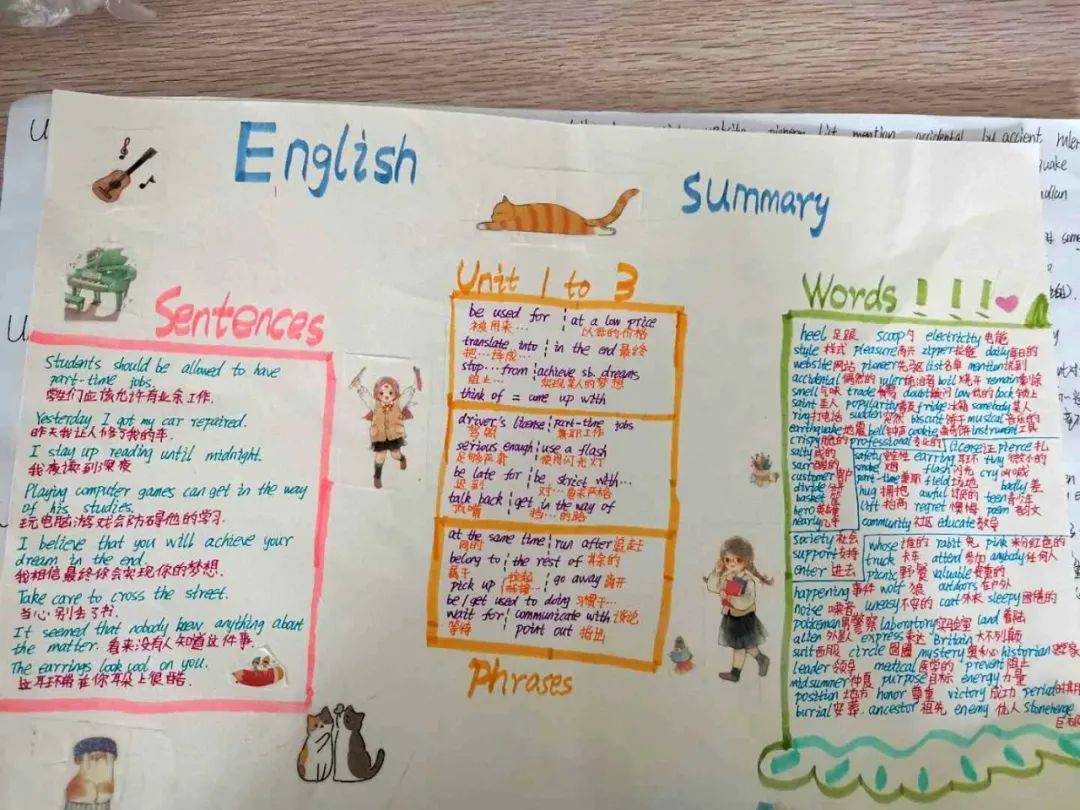 English Summary
Sentences
Students should be allowed to have
part-time jobs.
学生们应该允许有业余工作.
Yesterday I got my car repaired.
昨天我让人修了我的车.
I stay up reading until midnight.
我夜读到深夜
Playing computer games can get in the way
of his studies.
玩电脑游戏会防碍他的学习.
I believe that you will achieve your
dream in the end.
我相信最终你会实现你的梦想.
Take care to cross the street.
当心别去了书.
It seemed that nobody knew anything about
the matter. 看来没有人知道这件事.
The earrings look cool on you.
这耳环在你耳朵上很酷.
Unit 1 to 3
be used for at a low price
被用来… 以低的价格
translate into in the end 最终
把…译成…
stop…from achieve sb. dreams
阻止… 实现某人的梦想
think of = come up with
driver's license part-time jobs
驾照 兼职工作
serious enough use a flash
足够严重 使用闪光灯
be late for be strict with…
迟到 对…要求严格
talk back get in the way of
顶嘴 挡…的路
at the same time run after 追赶
同时
belong to the rest of 其余的
属于
pick up go away 离开
be/get used to doing 习惯于…
wait for communicate with 谈论
等待 point out 指出
Phrases
Words ! ! !
heel 足跟 scoop electricity 电能
style 样式 pleasure 高兴 zipper 拉链 daily 每日的
website 网站 pioneer 先驱 list 名单 mention 提到
accidental 偶然的 ruler 统治者 boil 烧开 remain
smell 气味 trade doubt 疑问 low 低的 lock 锁上
saint 圣人 popularity fridge 冰箱 somebody 某人
ring 打电话 sudden 突然 biscuit 饼干 musical 音乐的
earthquake 地震 bell 钟声 cookie instrument 工具
crispy 脆的 professional 专业的 license 证 pierce 扎
salty 咸的 safety 安全性 earring 耳环 tiny 微小的
sour 酸的 smoke 烟 flash 闪光 cry 叫喊
customer 客户 part-time 兼职 field 场地 badly 差
divide hug 拥抱 awful teen 青少年
basket 篮 lift 抬高 regret 懊悔 poem 韵文
hero 英雄 community 社区 educate 教导
nearly 几乎
society 社会 whose 谁的 rabbit 兔 pink 粉红色的
support 支持 truck 卡车 attend 参加 anybody 任何人
enter 进去 picnic 野餐 valuable 贵重的
happening 事件 wolf 狼 outdoors 在户外
noise 噪音 uneasy 不安的 coat 外衣 sleepy 困倦的
policeman 男警察 laboratory 实验室 land 着陆
alien 外星人 express 表达 Britain 大不列颠
suit 西服 circle 圆圈 mystery historian
leader 领导 medical 医学的 prevent 阻止
midsummer 仲夏 purpose 目标 energy 力量
position 地方 honor 尊重 victory 成功 period
burial 安葬. ancestor 祖先 enemy 仇人 Stonehenge